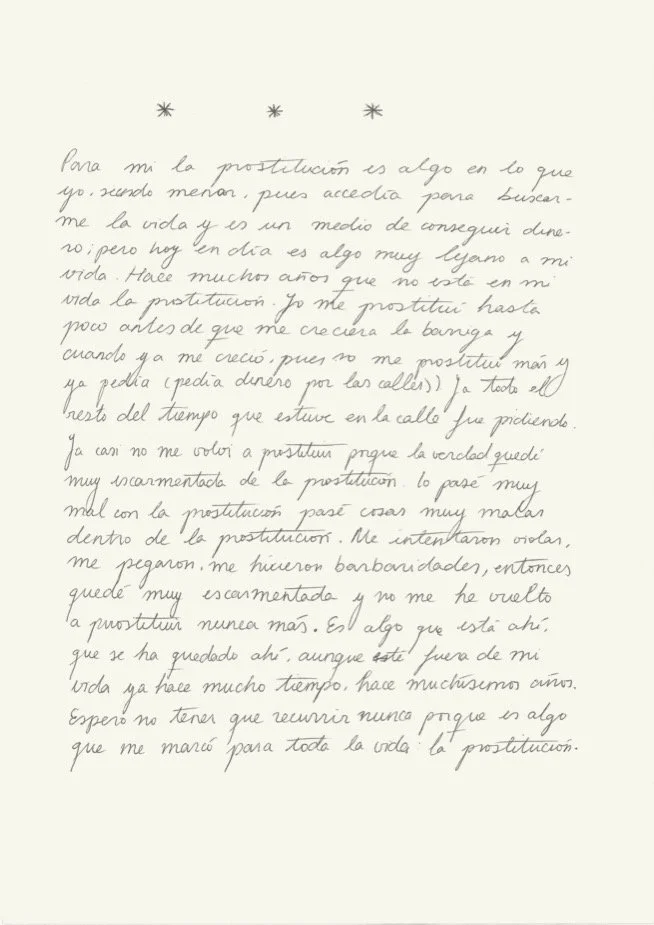 * * *
Para mi la prostitución es algo en lo que
yo, siendo menor, pues accedía para buscar-
me la vida y es un medio de conseguir dine-
ro; pero hoy en día es algo muy lejano a mi
vida. Hace muchos años que no está en mi
vida la prostitución. Yo me prostituí hasta
poco antes de que me creciera la barriga y
cuando ya me creció, pues no me prostituí más y
ya pedía (pedía dinero por las calles)) Ya todo el
resto del tiempo que estuve en la calle fue pidiendo.
Ya casi no me volví a prostituir porque la verdad quedé
muy escarmentada de la prostitución. Lo pasé muy
mal con la prostitución pasé cosas muy malas
dentro de la prostitución. Me intentaron violar,
me pegaron, me hicieron barbaridades, entonces
quedé muy escarmentada y no me he vuelto
a prostituir nunca más. Es algo que está ahí,
que se ha quedado ahí, aunque esté fuera de mi
vida ya hace mucho tiempo, hace muchísimos años.
Espero no tener que recurrir nunca porque es algo
que me marcó para toda la vida: la prostitución.